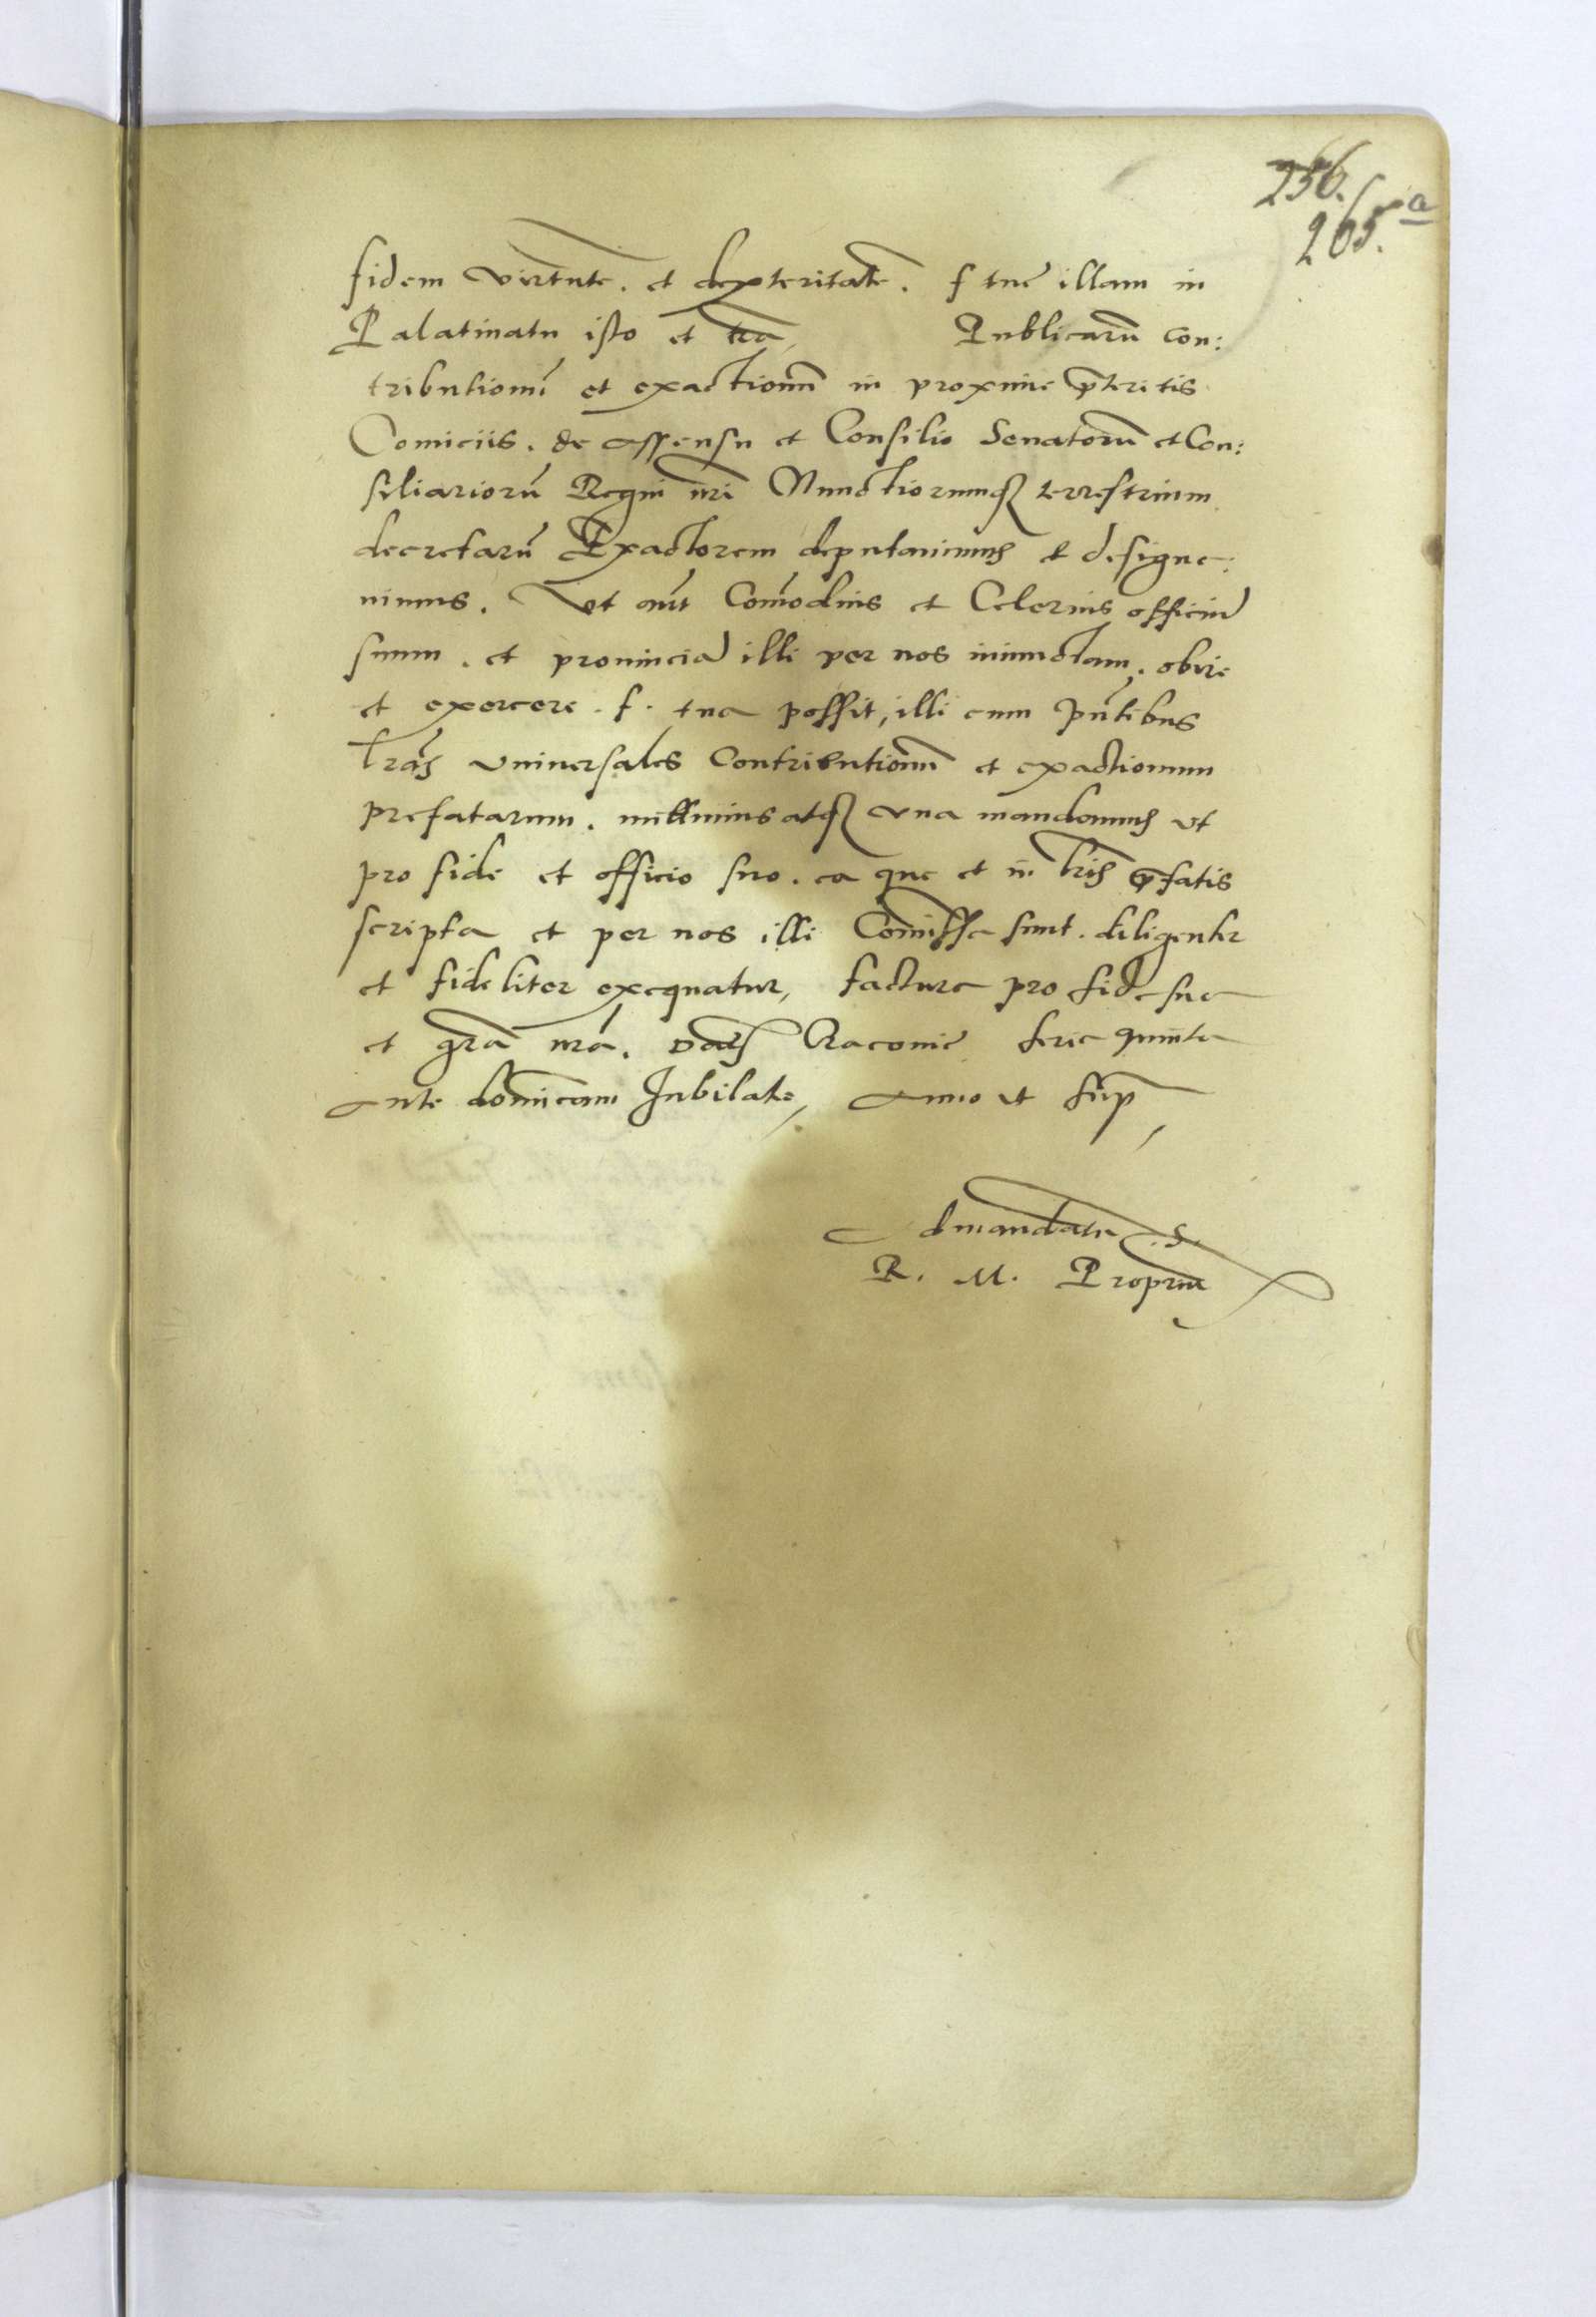 256.
265.a
fidem virtute. et dexteritate. f tue illam in
Palatinatu isto et tra, Publicarū con:
tributionū et exactionū in proxime p̄teritis
Comiciis. de assensu et Consilio Senatorū et Con:
siliariorū Regni nr̄i Nunctiorumq terrestrium
decretarū Exactorem deputauimus et designa:
uimus. Vt aūt Com̄odius et Celerius officiū
suum. et prouinciā illi per nos iniunctam. obire
et exercere. f. tua possit, illi cum pn̄tibus
l̄ras vniuersales Contributionū et exactionum
prefatarum. mittimus atq vna mandamus vt
pro fide et officio suo. ea que et in l̄ris p̄fatis
scripta et per nos illi Com̄issa sunt. diligenter
et fideliter exequatur, factura pro fide sua
et gr̄a nr̄a. Dat Cracouie feria quinta
ante dom̄icam Jubilate, Anno vt sup̄
Admandatū S.
R. M. Propriū